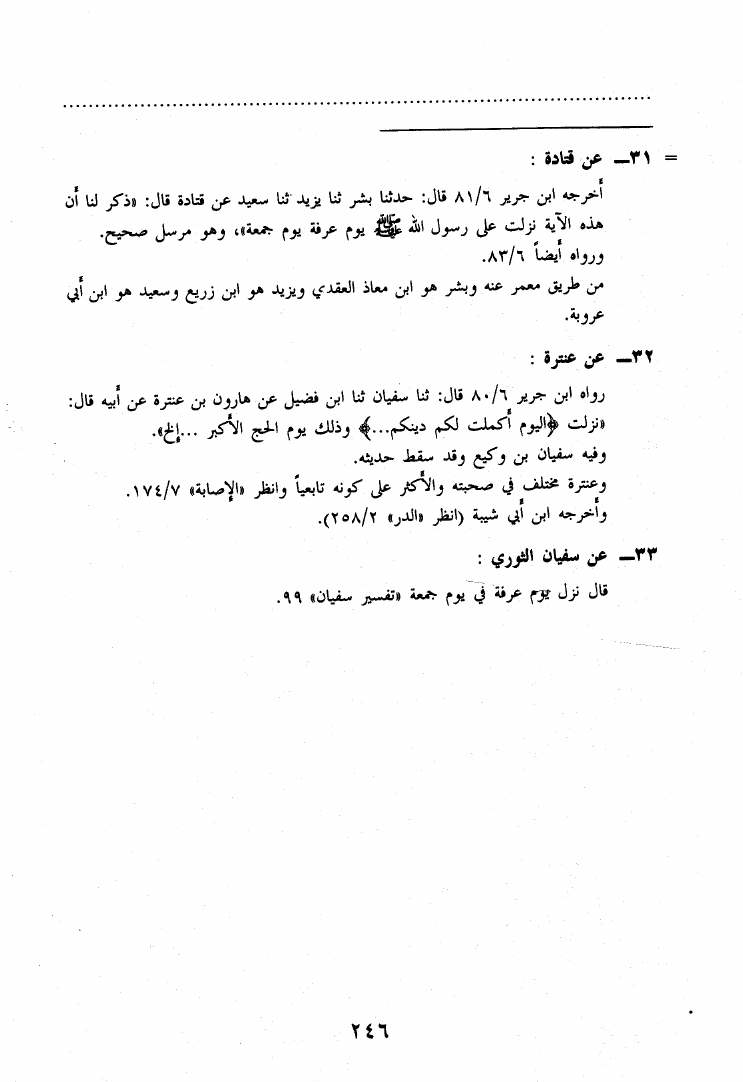 = ٣١ــ عن قتادة :
أخرجه ابن جرير ٨١/٦ قال: حدثنا بشر ثنا يزيد ثنا سعيد عن قتادة قال: «ذكر لنا أن
هذه الآية نزلت على رسول الله ﷺ يوم عرفة يوم جمعة»، وهو مرسل صحيح.
ورواه أيضاً ٨٣/٦.
من طريق معمر عنه وبشر هو ابن معاذ العقدي ويزيد هو ابن زريع وسعيد هو ابن أبي
عروبة.
٣٢ــ عن عنترة :
رواه ابن جرير ٨٠/٦ قال: ثنا سفيان ثنا ابن فضيل عن هارون بن عنترة عن أبيه قال:
«نزلت ﴿اليوم أكملت لكم دينكم...﴾ وذلك يوم الحج الأكبر ...إلخ».
وفيه سفيان بن وكيع وقد سقط حديثه.
وعنترة مختلف في صحبته والأكثر على كونه تابعياً وانظر «الإصابة» ١٧٤/٧.
وأخرجه ابن أبي شيبة (انظر «الدر» ٢٥٨/٢).
٣٣ــ عن سفيان الثوري :
قال نزل يوم عرفة في يوم جمعة «تفسير سفيان» ٩٩.
٢٤٦